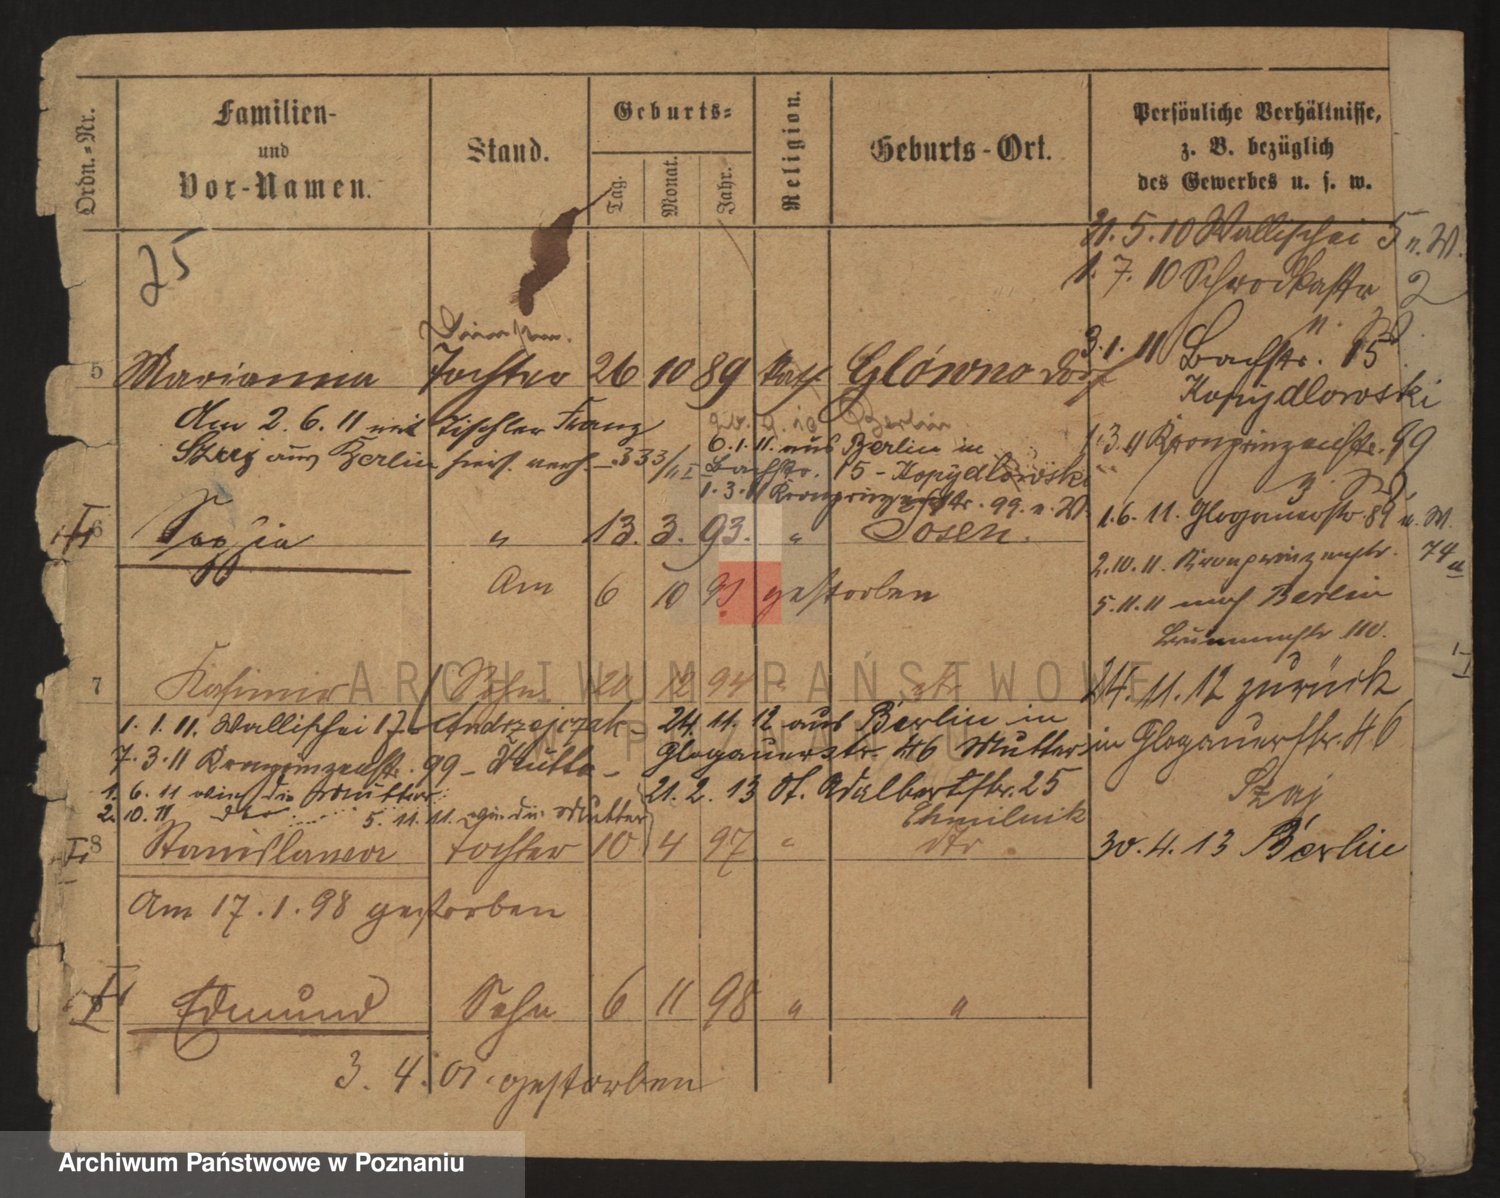 Ordn.-Nr.
Familien-
und
Vor-Namen.
Stand.
Geburts-
Tag.
Monat.
Jahr.
Religion.
Geburts-Ort.
Persönliche Verhältnisse,
z. B. bezüglich
des Gewerbes u. s. w.
25
21. 5. 10 Wallischei 5 n. W.
1. 7. 10 Schrodkastr 2
n. W.
3. 1. 11 Bachstr. 15
Kopydlowski
5 Marianna Tochter 26 10 89 kath Glówno Dorf
Am 2. 6. 11 mit Tischler Franz
Staj aus Berlin
6. 1. 11. aus Berlin in
Bachstr. 15 - Kopydlowski
1. 3. 11 Kronprinzenstr. 99. n. W.
1. 3. 11 Kronprinzenstr. 99
6 Sophia " 13. 3. 93. " Posen.
1. 6. 11. Glogauerstr 89 n. W.
Am 6 10 93 gestorben
2. 10. 11. Kronprinzenstr. 74
5. 11. 11 nach Berlin
110.
7 Kasimir Sohn 20 12 94 " dto
24. 11. 12 zurück
in Glogauerstr. 46
Staj
1. 1. 11. Wallischei 17 - Andrzejczak -
7. 3. 11 Kronprinzenstr. 99 -
1. 6. 11 wie die Mutter
2. 10. 11 dto 5. 11. 11. wie die Mutter
24. 11. 12 aus Berlin in
Glogauerstr. 46 Mutter
21. 2. 13 St. Adalbertstr. 25
Chmilnik
8 Stanislawa Tochter 10 4 97 " dto.
30. 4. 13 Berlin
Am 17. 1. 98 gestorben
Edmund Sohn 6 11 98 " "
3. 4. 01. gestorben
ARCHIWUM PAŃSTWOWE
W POZNANIU
Archiwum Państwowe w Poznaniu